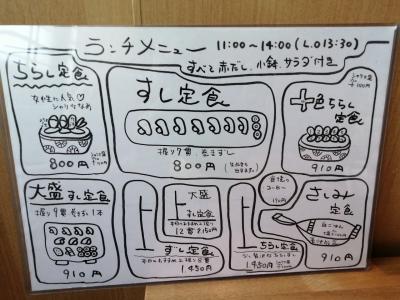 ランチメニュー 11:00～14:00(L.O13:30)
すべて赤だし、小鉢、サラダ付き
ちらし定食
女性に人気♡
800円
すし定食
握り7貫、巻きずし
800円
十色ちらし
定食
910円
大盛すし定食
握り9貫 巻ずし1本
910円
上
大盛
すし定食
12貫
上
すし定食
1450円
上
ちらし定食
1450円
コーヒー
さしみ
定食
910円